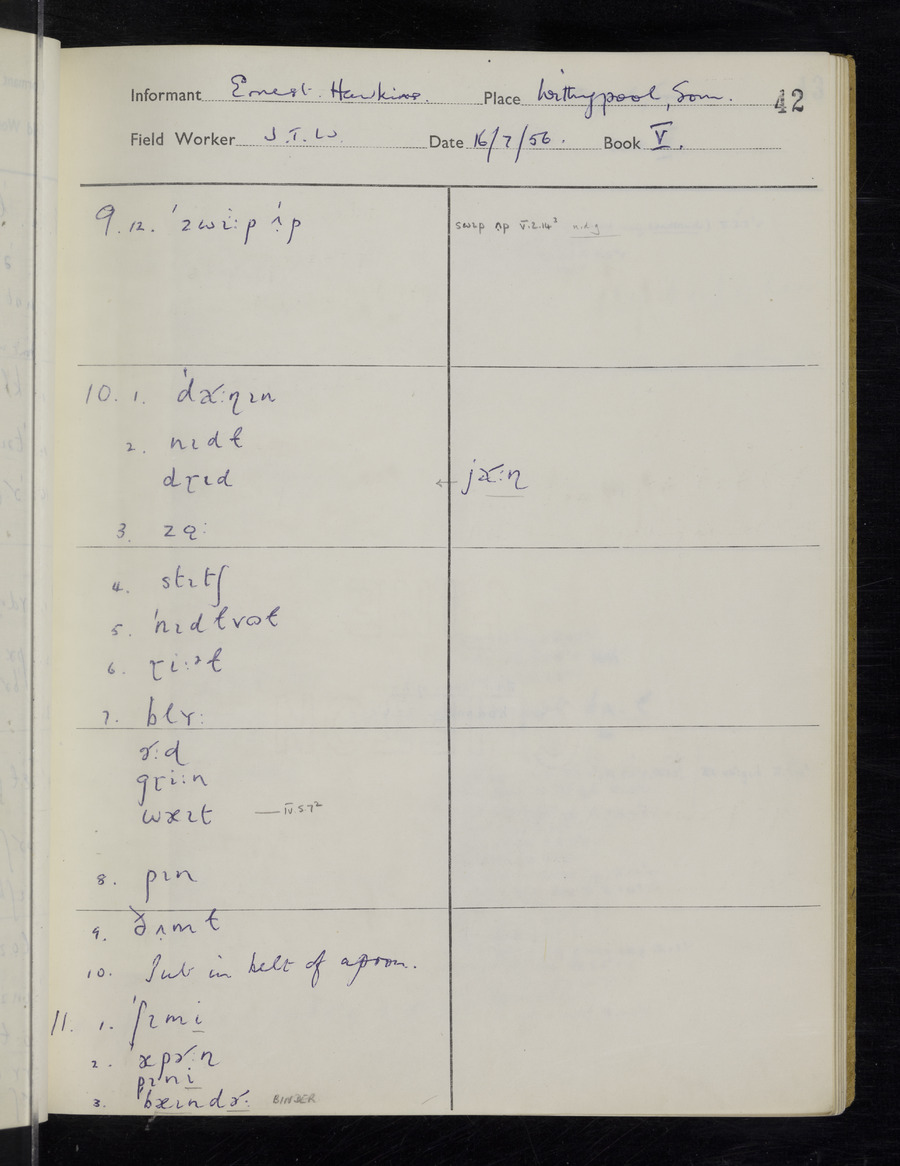 Informant Ernest Hawkins. Place Withypool, Som. 42
Field Worker S.T.W. Date 16/7/56. Book V.
9. 12. ˈzwiːp ʌp
swɪp ʌp V.2.14² n.d.g
10. 1. ˈdɚːnɪn
2. nɪdɫ
dɽɪd ← jɚːn
3. zɒː
4. stɪtʃ
5. ˈnɪdɫvʊɫ
6. ɽiːəɫ
7. blɤː
ɚːd
gɽiːn
wæɪt — IV.5.7²
8. pɪn
9. ðʌmɫ
10. Put in belt of apron.
11. 1. ˈʃɪmi
2. ˈæpɚːn
pɪni
3. ˈbæɪndɚː BINDER